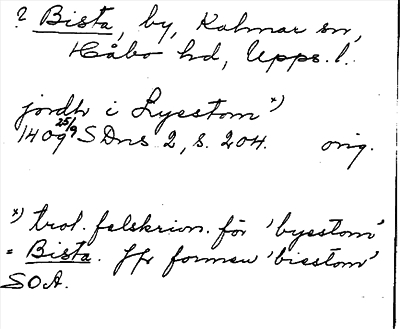 ? Bista, by, Kalmar sn,
Håbo hd, Upps. l.
jordh i Lysstom *)
1409 25/9 SDns 2, s. 204. orig.
*) trol. felskrivn. för 'bysstom'
= Bista. Jfr formen 'bisstom'
SOA.